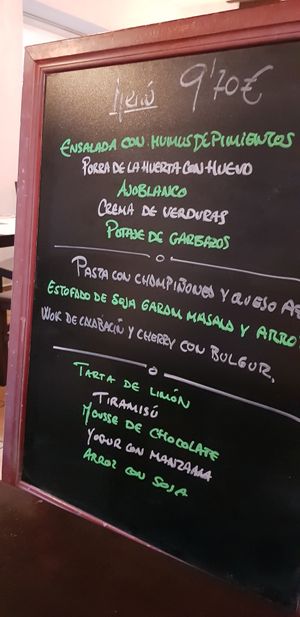 Menú 9'70€
ENSALADA CON HUMUS DE PIMIENTOS
PORRA DE LA HUERTA CON HUEVO
AJOBLANCO
CREMA DE VERDURAS
POTAJE DE GARBAZOS
PASTA CON CHAMPIÑONES Y QUESO
ESTOFADO DE SOJA GARAM MASALA Y ARRO
WOK DE CALABACÍN Y CHERRY CON BULGUR.
TARTA DE LIMÓN
TIRAMISÚ
MOUSSE DE CHOCOLATE
YOGUR CON MANZANA
ARROZ CON SOJA